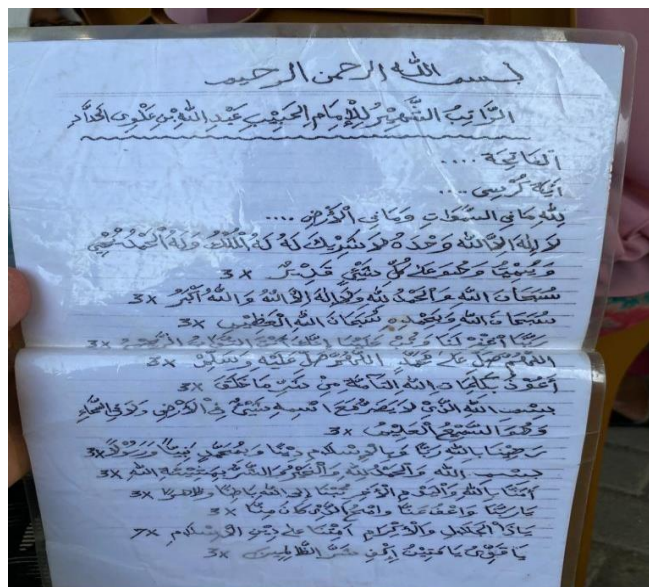 بسم الله الرحمن الرحيم
الرَّاتِبُ الشَّهِيْرُ لِلْإِمَامِ الْحَبِيْبِ عَبْدِ اللهِ بْنِ عَلْوِى الْحَدَّادِ
الْفَاتِحَة ....
ايَةُ كُرْسِى ....
لِلّٰهِ مَا فِى السَّمٰوَاتِ وَمَا فِى الْأَرْضِ ....
لَا اِلٰهَ اِلَّا اللهُ وَحْدَهُ لَا شَرِيْكَ لَهُ لَهُ الْمُلْكُ وَلَهُ الْحَمْدُ يُحْيِى
وَيُمِيْتُ وَهُوَ عَلَى كُلِّ شَيْئٍ قَدِيْرٌ 3x
سُبْحَانَ اللهِ وَالْحَمْدُ لِلّٰهِ وَلَا اِلٰهَ اِلَّا اللهُ وَاللهُ اَكْبَرُ 3x
سُبْحَانَ اللهِ وَبِحَمْدِهِ سُبْحَانَ اللهِ الْعَظِيْمِ 3x
رَبَّنَا اغْفِرْ لَنَا وَتُبْ عَلَيْنَا اِنَّكَ اَنْتَ التَّوَّابُ الرَّحِيْمُ 3x
اَللّٰهُمَّ صَلِّ عَلَى مُحَمَّدٍ اَللّٰهُمَّ صَلِّ عَلَيْهِ وَسَلِّمْ 3x
اَعُوْذُ بِكَلِمَاتِ اللهِ التَّامَّةِ مِنْ شَرِّ مَا خَلَقَ 3x
بِسْمِ اللهِ الَّذِىْ لَا يَضُرُّ مَعَ اسْمِهِ شَيْئٌ فِى الْأَرْضِ وَلَا فِى السَّمَاءِ
وَهُوَ السَّمِيْعُ الْعَلِيْمُ 3x
رَضِيْنَا بِاللهِ رَبًّا وَبِالْإِسْلَامِ دِيْنًا وَبِمُحَمَّدٍ نَبِيًّا وَرَسُوْلًا 3x
بِسْمِ اللهِ وَالْحَمْدُ لِلّٰهِ وَالْخَيْرُ وَالشَّرُّ بِمَشِيْئَةِ اللهِ 3x
اٰمَنَّا بِاللهِ وَالْيَوْمِ الْأٰخِرِ تُبْنَا اِلَى اللهِ بَاطِنًا وَظَاهِرًا 3x
يَا رَبَّنَا وَاعْفُ عَنَّا وَامْحُ الَّذِىْ كَانَ مِنَّا 3x
يَا ذَا الْجَلَالِ وَالْإِكْرَامِ اَمِتْنَا عَلَى دِيْنِ الْإِسْلَامِ 7x
يَا قَوِيُّ يَا مَتِيْنُ اِكْفِ شَرَّ الظَّالِمِيْنَ 3x